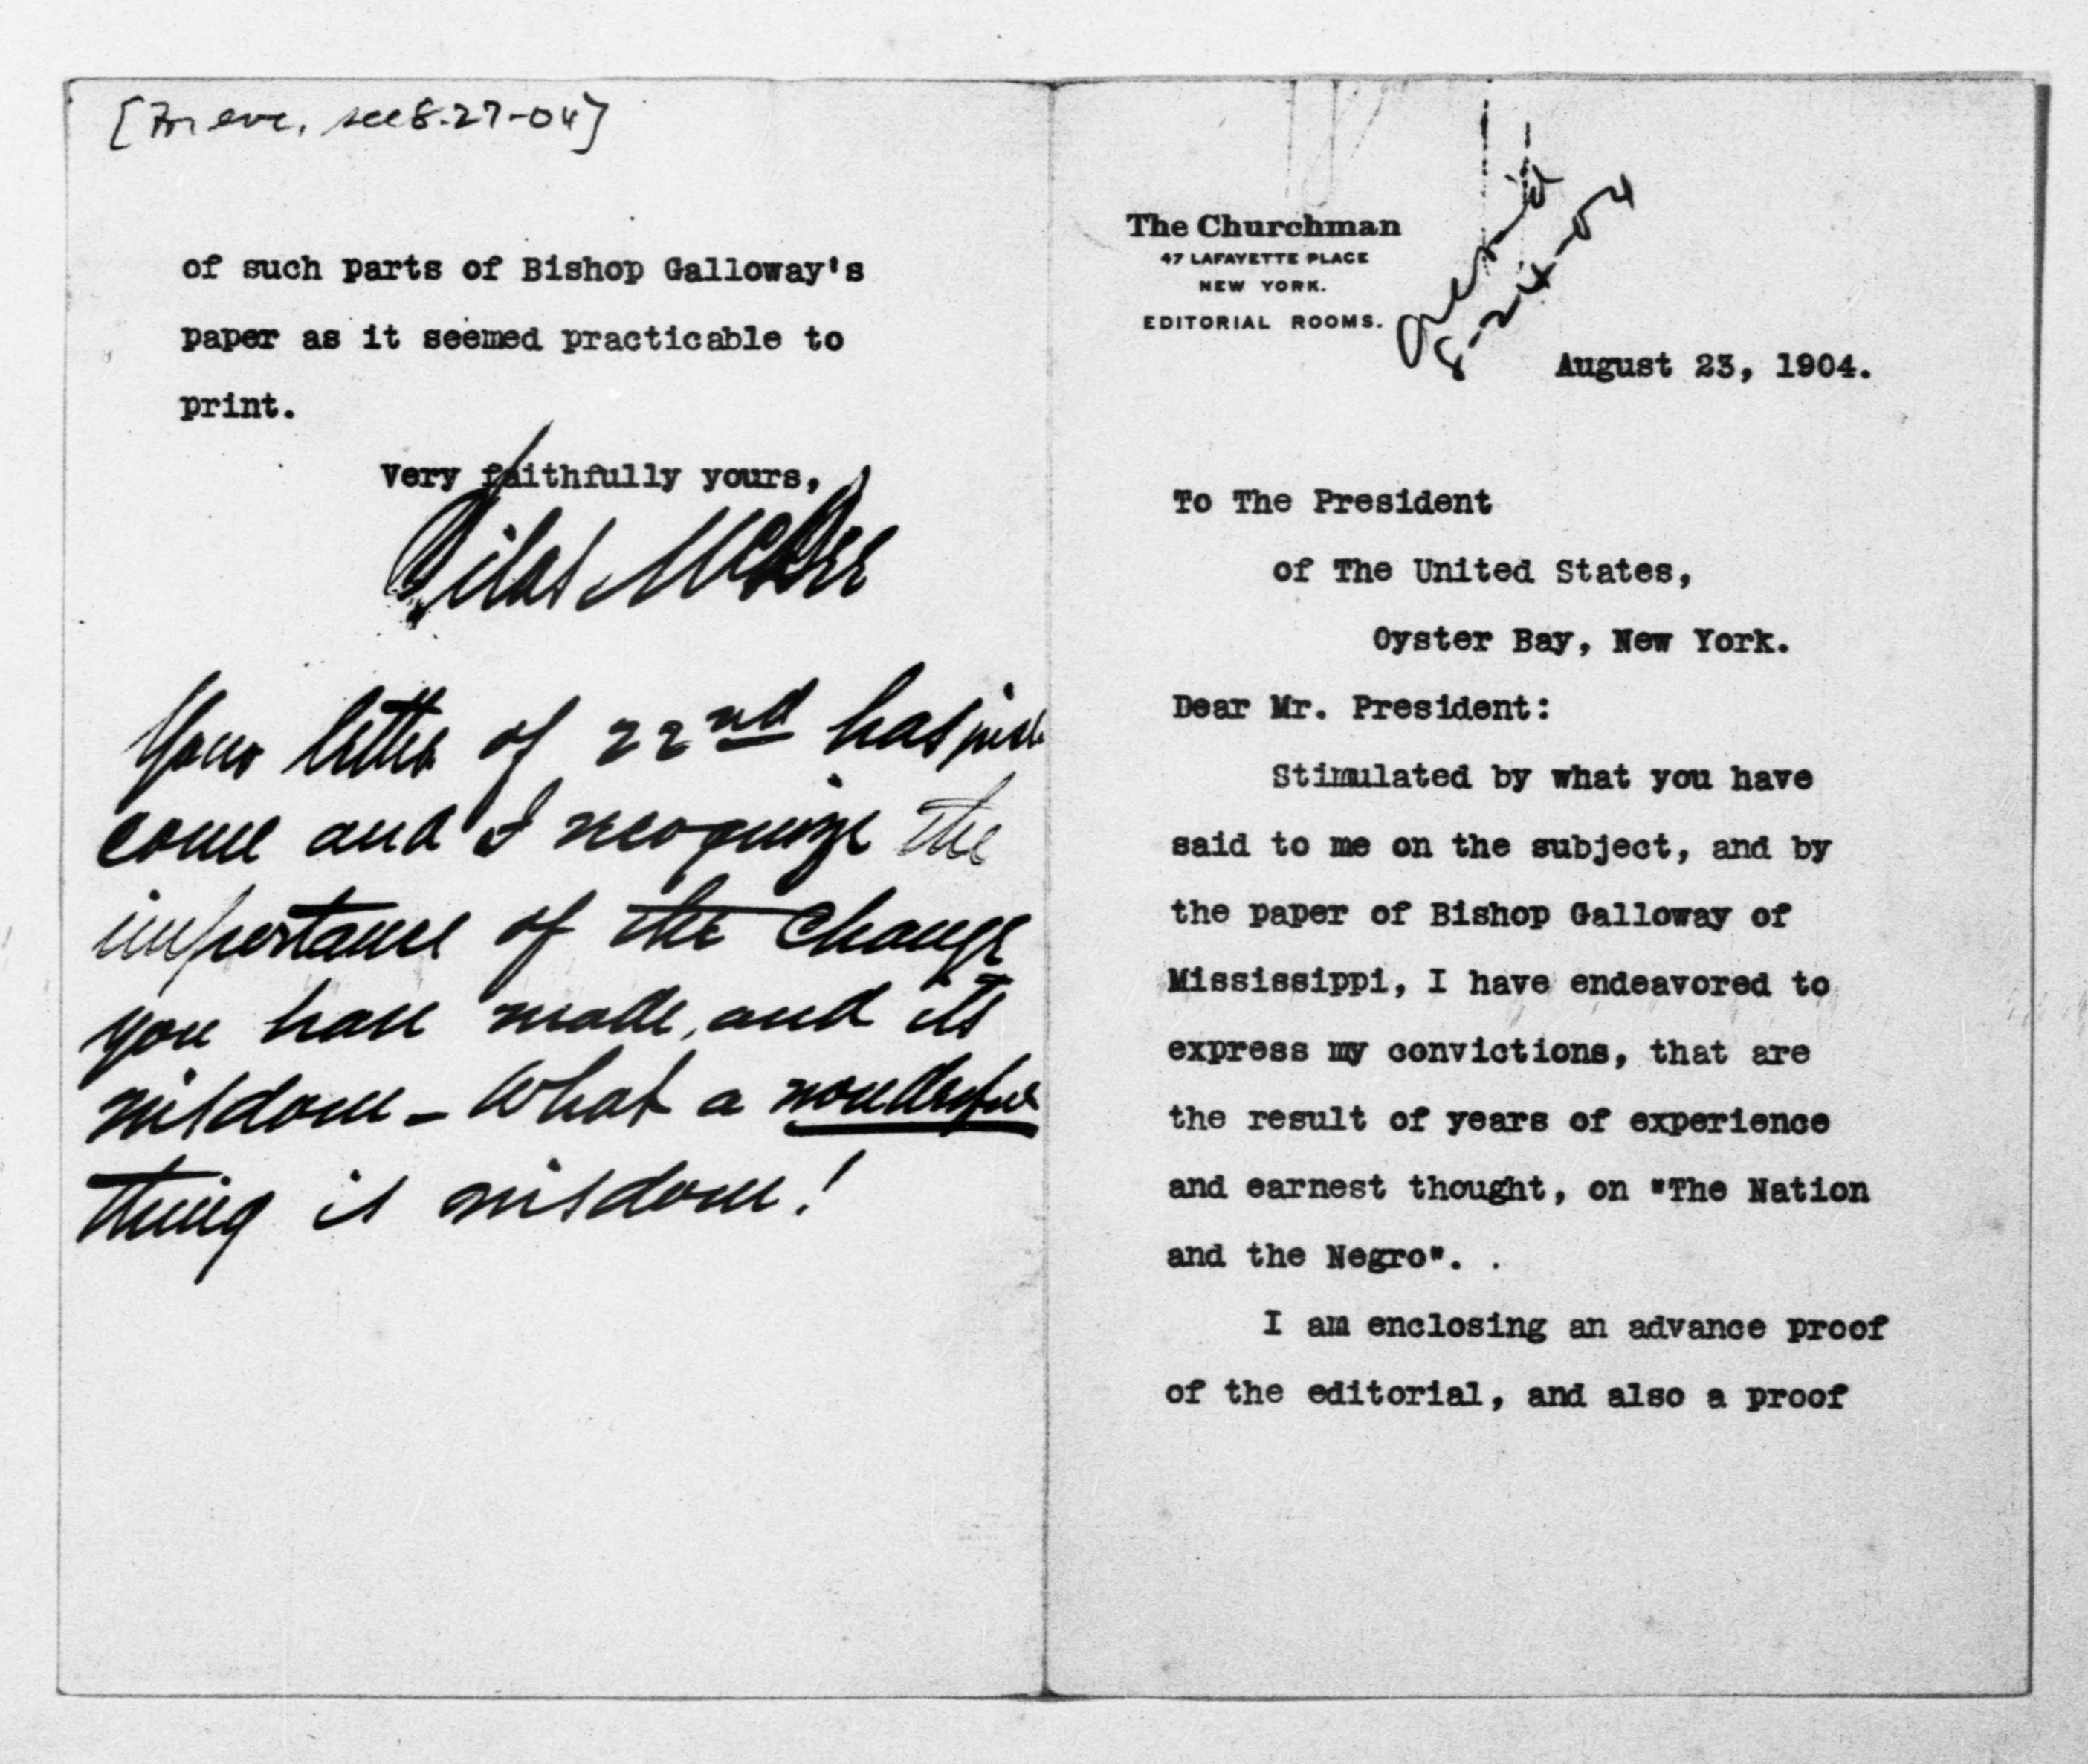 The Churchman
47 LAFAYETTE PLACE
NEW YORK.
EDITORIAL ROOMS.
8-24-04
August 23, 1904.
To The President
of The United States,
Oyster Bay, New York.
Dear Mr. President:
Stimulated by what you have
said to me on the subject, and by
the paper of Bishop Galloway of
Mississippi, I have endeavored to
express my convictions, that are
the result of years of experience
and earnest thought, on "The Nation
and the Negro". .
I am enclosing an advance proof
of the editorial, and also a proof
[For enc, see 8-27-04]
of such parts of Bishop Galloway's
paper as it seemed practicable to
print.
Very faithfully yours,
Silas McBee
Your letter of 22nd has just
come and I recognize the
importance of the change
you have made, and its
wisdom - What a wonderful
thing is wisdom!